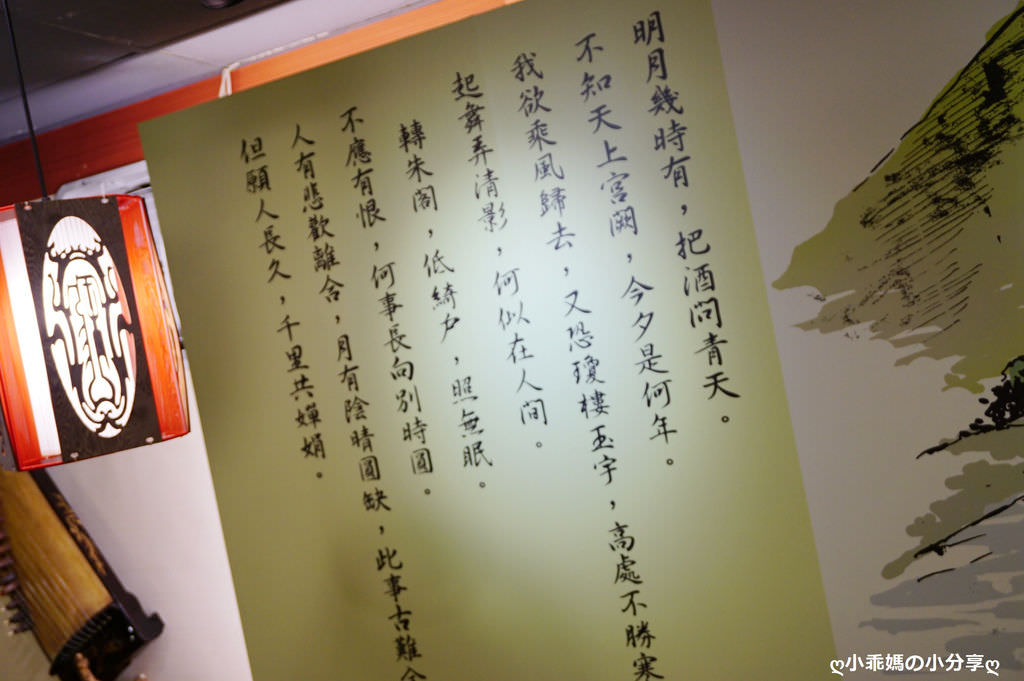 明月幾時有，把酒問青天。
不知天上宮闕，今夕是何年。
我欲乘風歸去，又恐瓊樓玉宇，高處不勝寒
起舞弄清影，何似在人間。
轉朱閣，低綺户，照無眠。
不應有恨，何事長向別時圓。
人有悲歡離合，月有陰晴圓缺，此事古難全
但願人長久，千里共嬋娟。
ღ小乖媽の小分享ღ